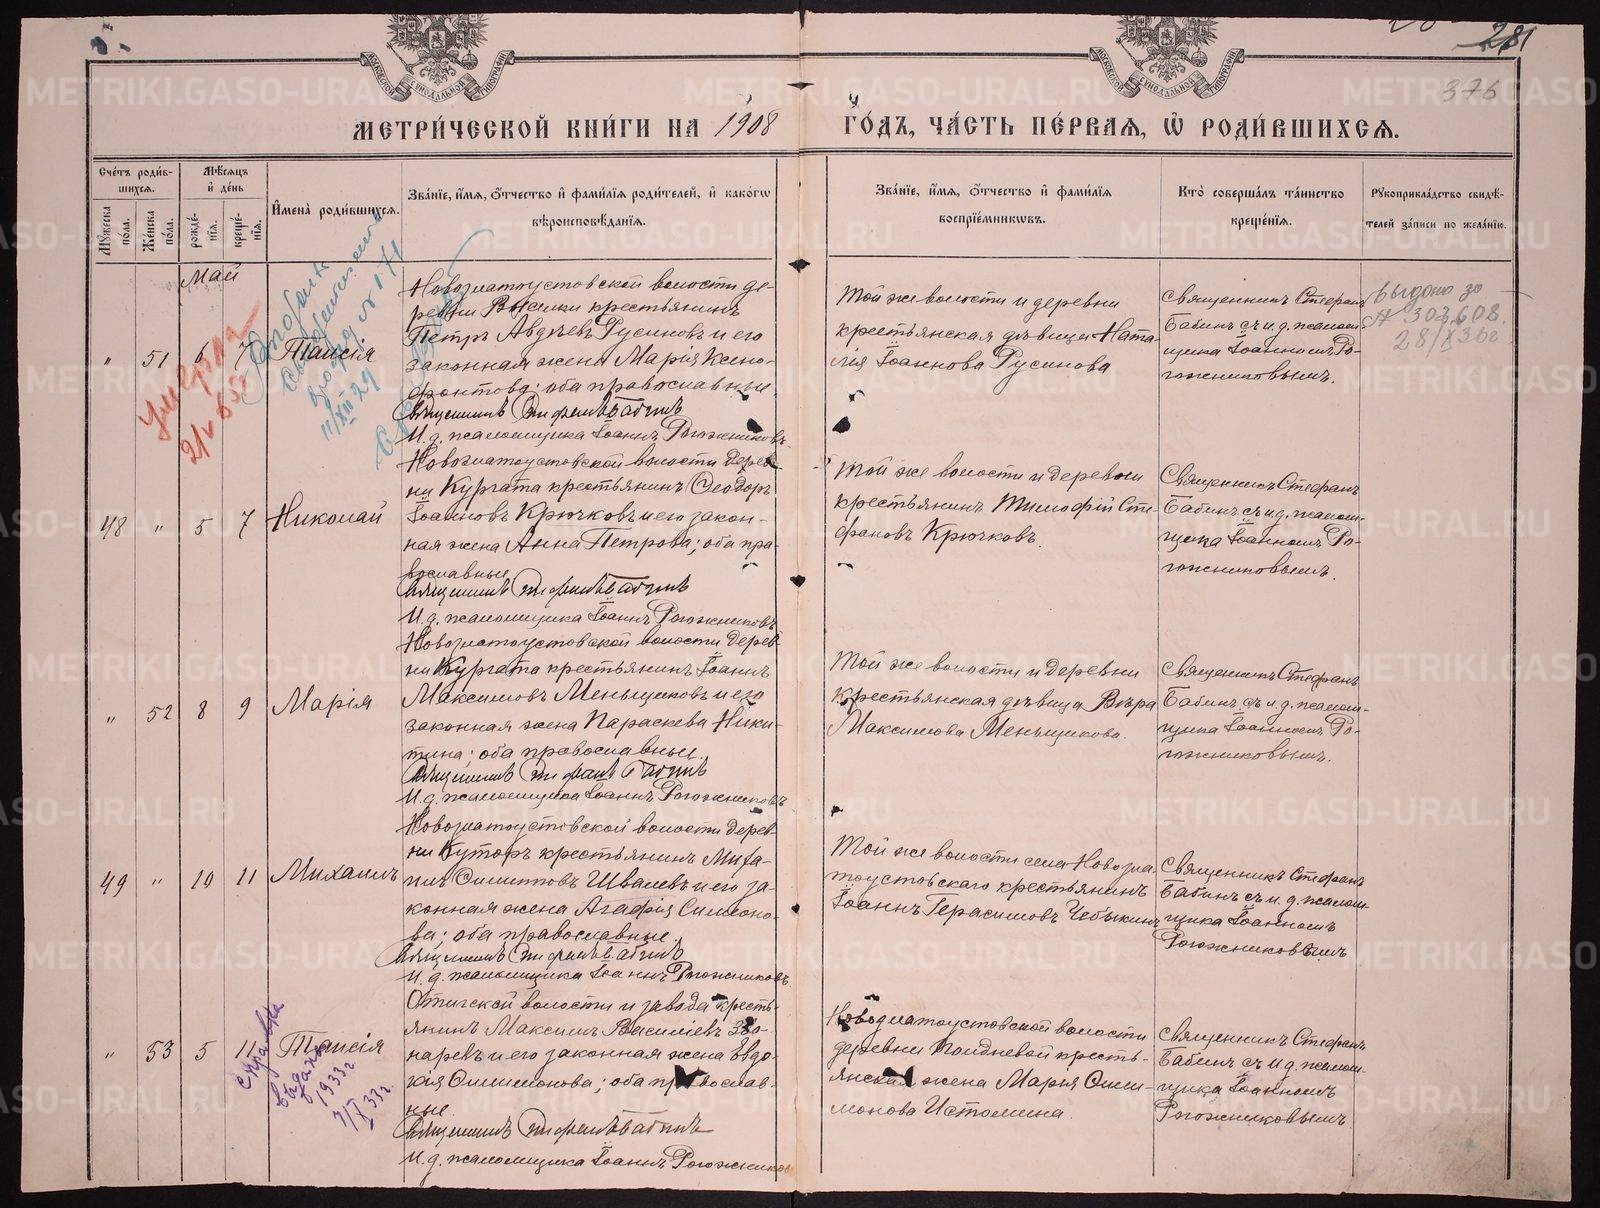 281
376
МЕТРИ́ЧЕСКОЙ КНИ́ГИ НА 1908 ГО́ДЪ, ЧА́СТЬ ПЕ́РВАЯ, Ѡ РОДИ́ВШИХСЯ.
Сче́тъ роди́в-
шихся.
Му́жеска по́ла.
Же́нска по́ла.
Мѣ́сяцъ и де́нь
рожде́-
нїя.
креще́-
нїя.
И́мена̀ роди́вшихся.
Зва́нїе, и́мя, о́тчество и фами́лїя роди́телей, и како́гѡ
вѣроисповѣ́данїя.
Зва́нїе, и́мя, о́тчество и фами́лїя
воспрїе́мникѡвъ.
Кто̀ соверша́лъ та́инство
креще́нїя.
Рꙋкоприкла́дство свидѣ́-
телей за́писи по жела́нїю.
Май
" 51 6 7 Таисія
Новозлатоустовской волости де-
ревни
крестьянинъ
Петръ Авдѣевъ Русиновъ и его
законная жена Марія Ксено-
фонтова; оба православные.
Священникъ Стефанъ Бабинъ
И.д. псаломщика Іоаннъ Рогожниковъ
Той же волости и деревни
крестьянская дѣвица Ната-
лія Іоаннова Русинова
Священникъ Стефанъ
Бабинъ съ и.д. псалом-
щика Іоанномъ Ро-
гожниковымъ.
Выдано за
№ 303608
Умерла
11/XII 29
48 " 5 7 Николай
Новозлатоустовской волости дерев-
ни Кургата крестьянинъ Ѳеодоръ
Іоанновъ Крючковъ и его закон-
ная жена Анна Петрова; оба пра-
вославные
Священникъ Стефанъ Бабинъ
И.д. псаломщика Іоаннъ Рогожниковъ
Той же волости и деревни
крестьянинъ Тимофій Сте-
фановъ Крючковъ.
Священникъ Стефанъ
Бабинъ съ и.д. псалом-
щика Іоанномъ Ро-
гожниковымъ.
" 52 8 9 Марія
Новозлатоустовской волости дерев-
ни Кургата крестьянинъ Іоаннъ
Максимовъ Меньщиковъ и его
законная жена Параскева Ники-
тина; оба православные.
Священникъ Стефанъ Бабинъ
И.д. псаломщика Іоаннъ Рогожниковъ
Той же волости и деревни
крестьянская дѣвица Вѣра
Максимова Меньщикова.
Священникъ Стефанъ
Бабинъ съ и.д. псалом-
щика Іоанномъ Ро-
гожниковымъ.
49 " 10 11 Михаилъ
Новозлатоустовской волости дерев-
ни Куторъ крестьянинъ Миха-
илъ Филиповъ Швалевъ и его за-
конная жена Агафія Симеоно-
ва; оба православные.
Священникъ Стефанъ Бабинъ
И.д. псаломщика Іоаннъ Рогожниковъ
Той же волости села Новозла-
тоустовскаго крестьянинъ
Іоаннъ Герасимовъ Чебыкинъ
Священникъ Стефанъ
Бабинъ съ и.д. псалом-
щика Іоанномъ
Рогожниковымъ
" 53 5 11 Таисія
справка
выдана
1933 г
7/X 33 г.
волости и завода кресть-
янинъ Максимъ Василіевъ Зво-
наревъ и его законная жена Евдо-
кія Филимонова; оба православ-
ные.
Священникъ Стефанъ Бабинъ
И.д. псаломщика Іоаннъ Рогожниковъ
Новозлатоустовской волости
деревни Полдневой кресть-
янская жена Марія Фили-
монова Истомина.
Священникъ Стефанъ
Бабинъ съ и.д. псалом-
щика Іоанномъ
Рогожниковымъ
METRIKI.GASO-URAL.RU